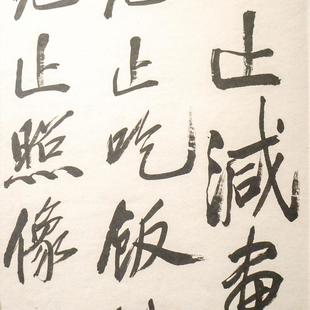 止減畫
止吃飯
止照像